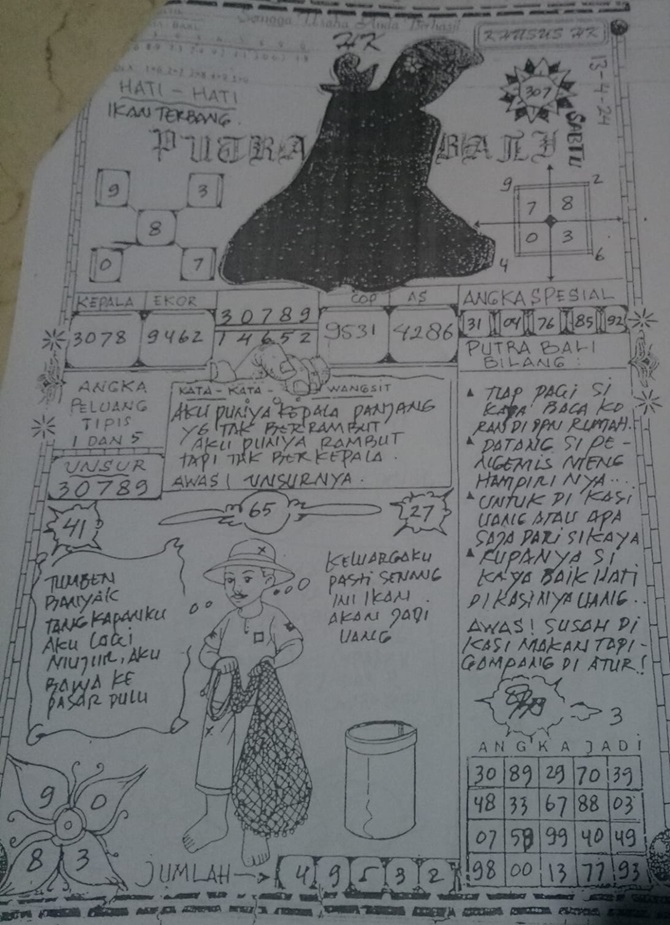 Sengga Usaha Anda Berhasil
HK
KHUSUS HK
13-4-24
SABTU
307
HATI - HATI
IKAN TERBANG.
PUTRA BALI
9 3
8
0 7
9 2
7 8
0 3
4 6
KEPALA EKOR
3078 9462
30789
14652
COP AS
9531 4286
ANGKA SPESIAL
31 04 76 85 92
PUTRA BALI
BILANG :
ANGKA
PELUANG
TIPIS
1 DAN 5
UNSUR
30789
KATA - KATA - WANGSIT
AKU PUNYA KEPALA PANJANG
YG TAK BERRAMBUT
AKU PUNYA RAMBUT
TAPI TAK BERKEPALA.
AWAS! UNSURNYA.
TIAP PAGI SI
KAYA BACA KO
RAN DI DPN RUMAH.
DATANG SI PE-
NGEMIS MENG
HAMPIRI NYA...
UNTUK DI KASI
UANG ATAU APA
SAJA DARI SI KAYA
RUPANYA SI
KAYA BAIK HATI
DI KASI NYA UANG..
AWAS! SUSAH DI
KASI MAKAN TAPI-
GAMPANG DI ATUR!
41
65
27
TUMBEN
BANYAK
TANGKAPANKU
AKU LAGI
MUJUR, AKU
BAWA KE
PASAR DULU
KELUARGAKU
PASTI SENANG
INI IKAN
AKAN JADI
UANG
3
9 0
8 3
JUMLAH → 4 9 5 3 2
ANGKA JADI
30 89 29 70 39
48 33 67 88 03
07 59 99 40 49
98 00 13 77 93